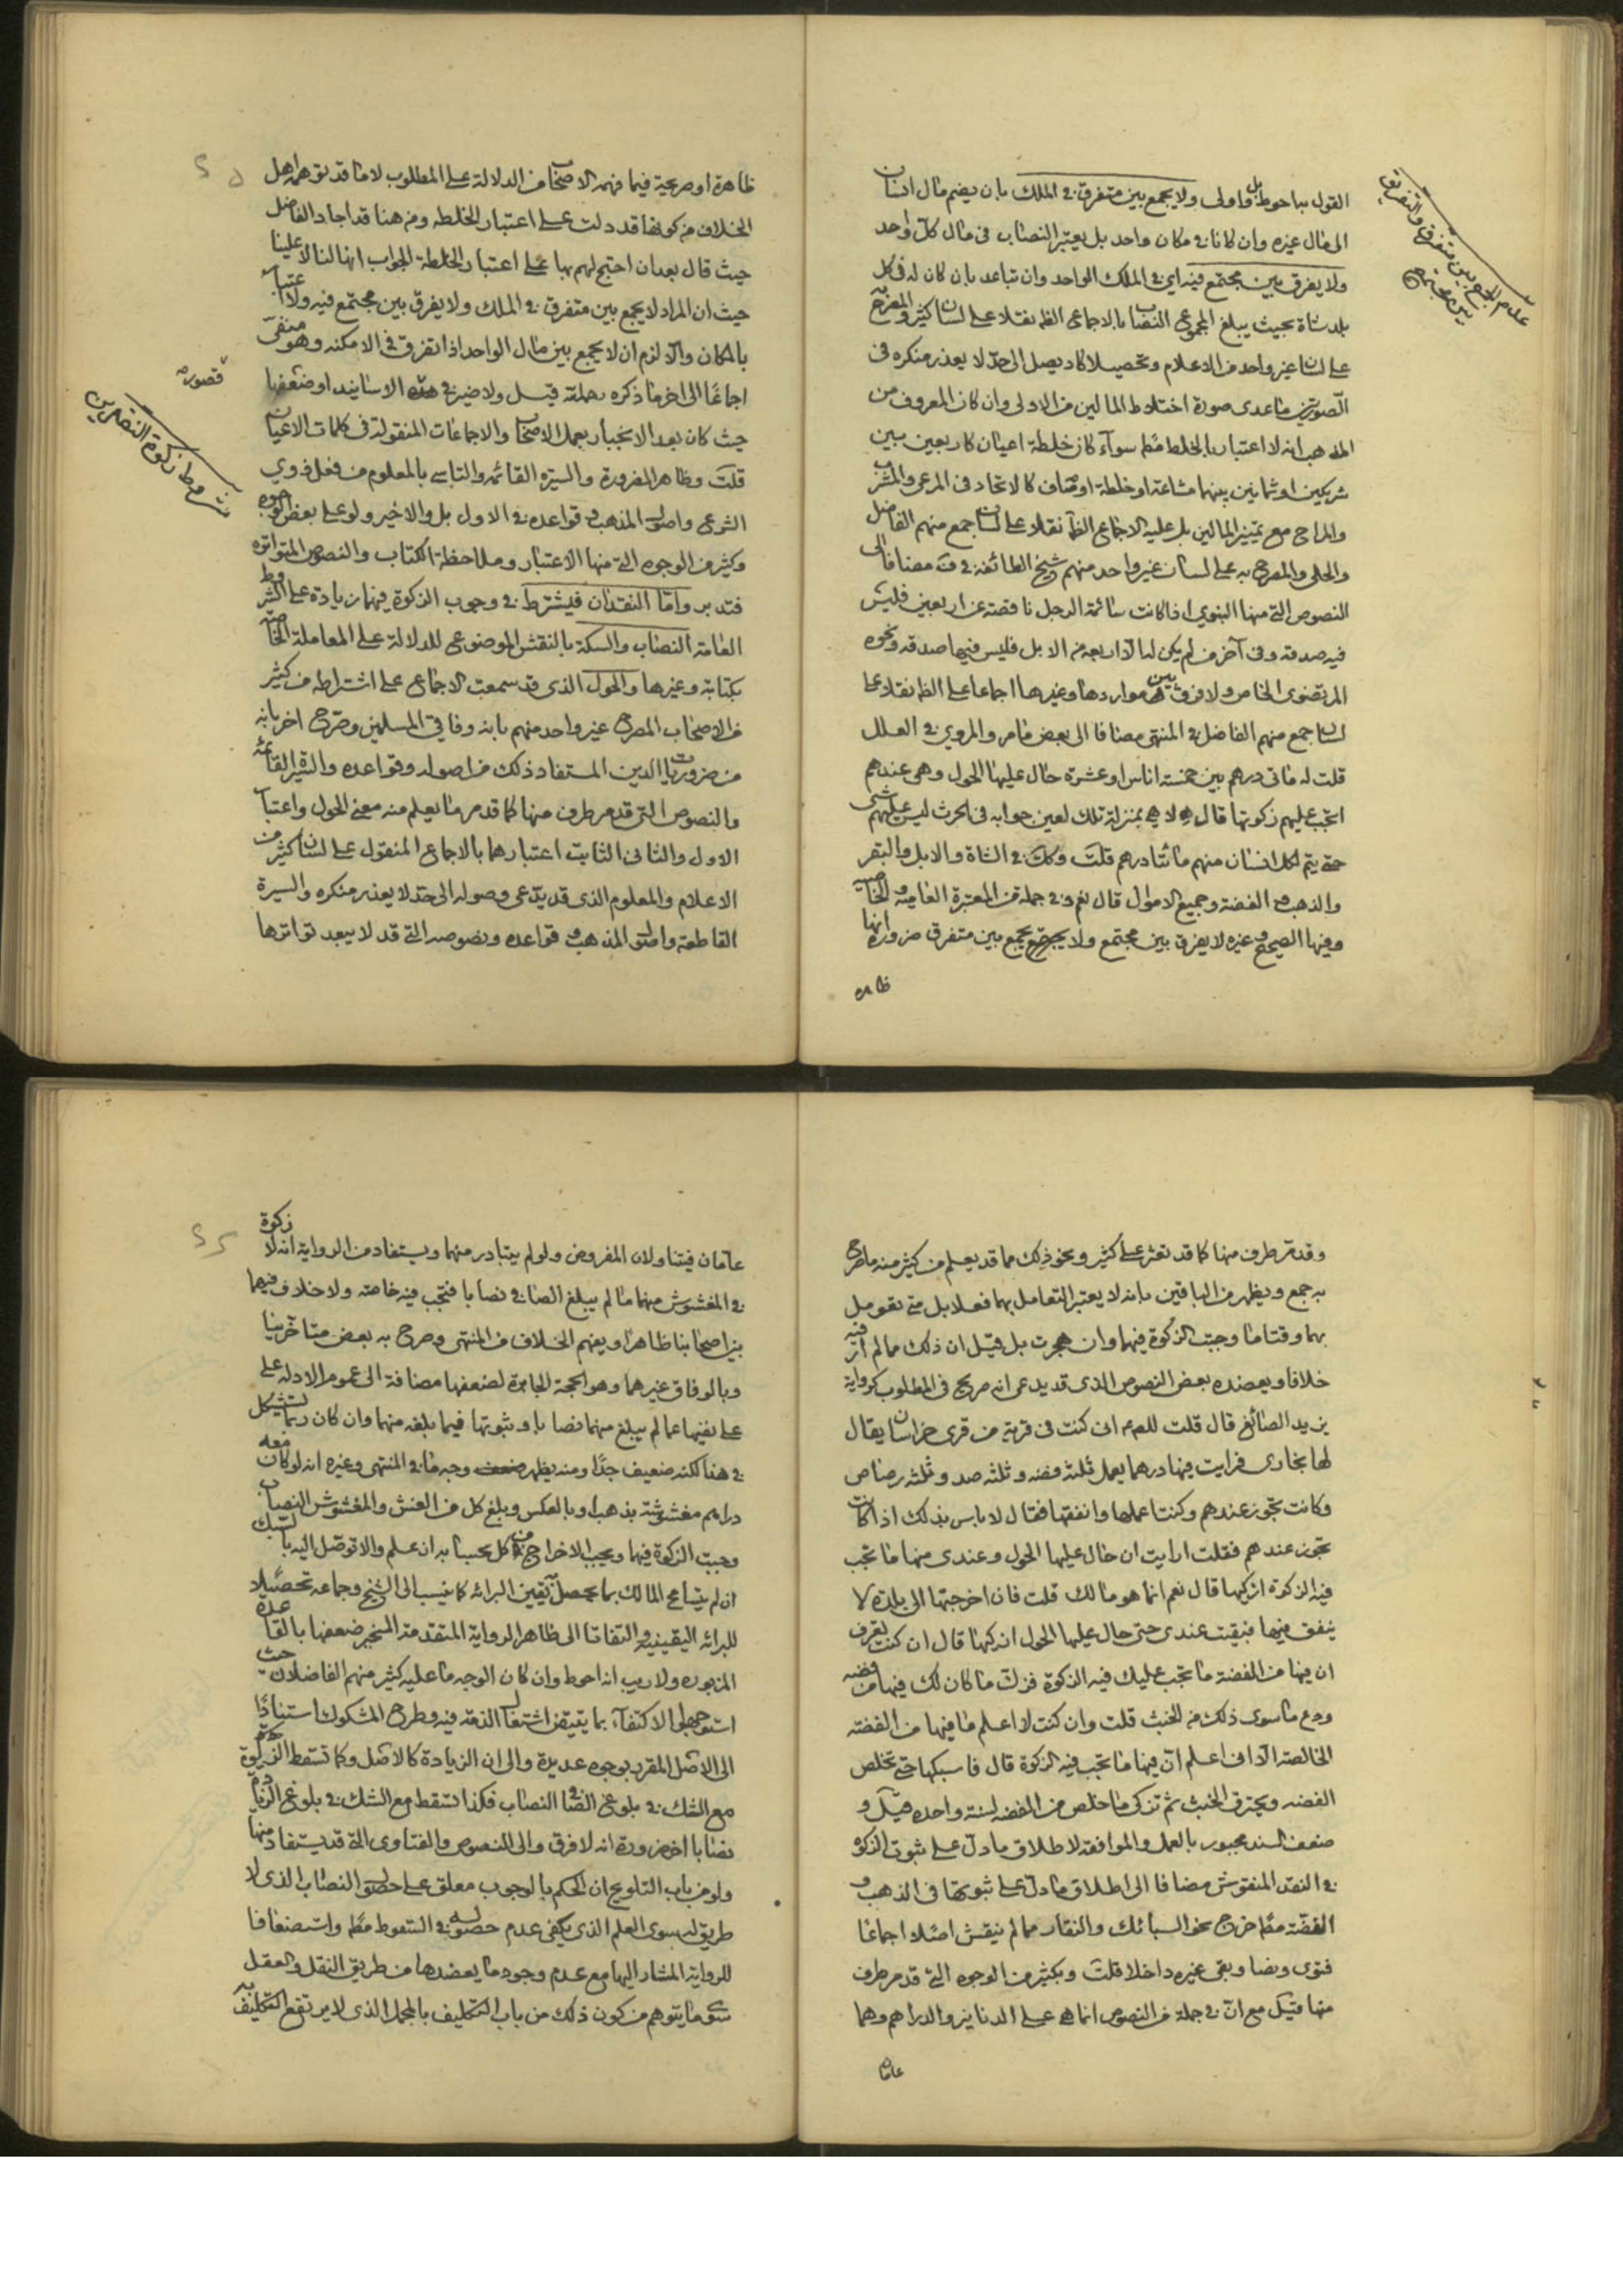 القول بها حوط بل واولى ولا يجمع بين متفرق في الملك بان يضم مال انسان
الى مال غيره وان كانا في مكان واحد بل يعتبر النصاب في مال كل واحد
ولا يفرق بين مجتمع فيه اي في الملك الواحد وان تباعد بان كان له في كل
بلد شاة بحيث يبلغ المجموع النصاب بالاجماع الظ نقلا على لسان كثير والمصرح به
على لسان غير واحد من الاعلام وتحصيلا كاد يصل الى حد لا يعذر منكره في
الصورتين ما عدى صورة اختلاط المالين من الاولى وان كان المعروف من
المذهب انه لا اعتبار بالخلط مطلقا سوآء كان خلطة اعيان كاربعين بين
شريكين او ثمانين بينهما مشاعة او خلطة اوصاف كالاتحاد في المرعى والمشرب
والمراح مع تميز المالين بل عليه الاجماع الظ نقلا على لسان جمع منهم الفاضل
والحلي والمصرح به على لسان غير واحد منهم شيخ الطائفة في ف مضافا الى
النصوص التي منها النبوي اذا كانت سائمة الرجل ناقصة عن اربعين فليس
فيه صدقه وفي آخر من لم يكن له الا اربعة من الابل فليس فيها صدقه ونحوه
المرتضوي الخاص ولا فرق بين مواردها وغيرها اجماعا على الظ نقلا على
لسان جمع منهم الفاضل في المنتهى مضافا الى بعض ما مر والمروي في العلل
قلت له مائتي درهم بين خمسة اناس او عشرة حال عليها الحول وهي عندهم
اتجب عليهم زكوتها قال لا هي بمنزلة تلك يعني جوابه في الحرث ليس عليهم شي
حتى يتم لكل انسان منهم مائتا درهم قلت وكك في الشاة والابل والبقر
والذهب والفضة وجميع الاموال قال نعم وفي جملة من المعتبرة العامية والخاصية
وفيها الصحيح وغيره لا يفرق بين مجتمع ولا يجمع بين متفرق ضرورة انها
ظاهره
عدم الجمع بين متفرق والتفريق
بين مجتمع
ظاهرة او صريحة فيما فهمه الاصحاب من الدلالة على المطلوب لا ما قد توهمه اهل
الخلاف من كونها قد دلت على اعتبار الخلطه ومن هنا قد اجاد الفاضل
حيث قال بعد ان احتج لهم بها على اعتبار الخلطة الجواب انها لنا لا علينا
حيث ان المراد لا يجمع بين متفرق في الملك ولا يفرق بين مجتمع فيه ولا اعتبار
بالمكان والا لزم ان لا يجمع بين مال الواحد اذا تفرق في الامكنه وهو منفي
اجماعا الى اخر ما ذكره بجملته قيل ولا ضير في هذه الاسانيد او ضعفها
قصور
حيث كان بعد الانجبار بعمل الاصحاب والاجماعات المنقولة في كلمات الاعيان
قلت وظاهر الضرورة والسيرة القائمه والتاسي بالمعلوم من فعل ذوي
الشرع واصول المذهب وقواعده في الاول بل والاخير ولو على بعض الوجوه
وكثير من الوجوه التي منها الاعتبار وملاحظة الكتاب والنصوص المتواتره
فتدبر واما النقدان فيشترط في وجوب الزكوة فيهما زيادة على الشروط
شروط زكوة النقدين
العامة النصاب والسكة بالنقش الموضوع للدلالة على المعاملة الخاصه
بكتابة وغيرها والحول الذي قد سمعت الاجماع على اشتراطه من كثير
من الاصحاب المصرح غير واحد منهم بانه وفاقي المسلمين وصرح اخر بانه
من ضروريات الدين المستفاد ذلك من اصوله وقواعده والسيرة القائمه
والنصوص التي قد مر طرف منها كما قد مر ما يعلم منه معنى الحول واعتبار
الاول والثاني الثابت اعتبارهما بالاجماع المنقول على لسان كثير من
الاعلام والمعلوم الذي قد يدعى وصوله الى حد لا يعذر منكره والسيرة
القاطعة واصول المذهب وقواعده ونصوصه التي قد لا يبعد تواترها
وقد مر طرف منها كما قد تعثر على كثير ونحو ذلك مما قد يعلم من كثير منه ما صرح
به جمع ويظهر من الباقين بانه لا يعتبر التعامل بها فعلا بل متى تعومل
بهما وقتا ما وجبت الزكوة فيهما وان هجرت بل قيل ان ذلك مما لم ار فيه
خلافا ويعضده بعض النصوص الذي قد يدعى انه صريح في المطلوب كرواية
يزيد الصائغ قال قلت للصم اني كنت في قرية من قرى خراسان يقال
لها بخارى فرايت فيها دراهم يعمل ثلثه فضه وثلثه صد وثلثه رصاص
وكانت تجوز عندهم وكنت اعملها وانفقها فقال لا باس بذلك اذا كانت
تجوز عندهم فقلت ارايت ان حال عليها الحول وعندي منها ما تجب
فيه الزكوة ازكيها قال نعم انما هو مالك قلت فان اخرجتها الى بلدة لا
ينفق فيها فبقيت عندي حتى حال عليها الحول ازكيها قال ان كنت تعرف
ان فيها من الفضة ما تجب عليك فيه الزكوة فزك ما كان لك فيها من فضه
ودع ما سوى ذلك من الخبث قلت وان كنت لا اعلم ما فيها من الفضه
الخالصة الا اني اعلم ان فيها ما تجب فيه الزكوة قال فاسبكها حتى تخلص
الفضه ويحترق الخبث ثم تزكي ما خلص من الفضه لسنة واحده قيل و
ضعف السند مجبور بالعمل والموافقه لاطلاق ما دل على ثبوت الزكوة
في النقد المنقوش مضافا الى اطلاق ما دل على ثبوتها في الذهب و
الفضة مطلقا خرج نحو السبائك والنقار مما لم ينقش اصلا اجماعا
فتوى ونصا وبقى غيره داخلا قلت وبكثير من الوجوه التي قد مر طرف
منها قيل مع ان في جملة من النصوص انما هي على الدنانير والدراهم وهما
عامان
عامان فيتناولان المفروض ولو لم يتبادر منهما ويستفاد من الرواية انه لا زكوة
في المغشوش منهما ما لم يبلغ الصافي نصابا فتجب فيه خاصه ولا خلاف فيهما
بين اصحابنا ظاهرا ويفهم الخلاف من المنتهى وصرح به بعض متاخرينا
وبالوفاق غيرهما وهو الحجة الجابرة لضعفها مضافة الى عموم الادله على
على نفيها عما لم يبلغ منهما نصابا وثبوتها فيما بلغه منهما وان كان ربما يستشكل
في هذا لكنه ضعيف جدا ومنه يظهر وجه ما في المنتهى وغيره انه لو كان معه
دراهم مغشوشة بذهب او بالعكس وبلغ كل من الغش والمغشوش النصاب
وجبت الزكوة فيهما ويجب الاخراج من كل بحسابه ان علم والا توصل اليه بالسبك
ان لم يتسامح المالك بما يحصل يقين البرائه كما ينسب الى الشيخ وجماعه تحصيلا
للبرائه اليقينيه والتفاتا الى ظاهر الرواية المتقدمة المنجبر ضعفها بالقاعده
المزبوره ولا ريب انه احوط وان كان الوجه ما عليه كثير منهم الفاضلان حيث
استوجها الاكتفآء بما يتيقن اشتغال الذمه فيه وطرح المشكوك استنادا
الى الاصل المقرر بوجوه عديدة والى ان الزيادة كالاصل وكما تسقط الزكوة
مع الشك في بلوغ الصافي النصاب فكذا تسقط مع الشك في بلوغ الزيادة
نصابا اخر ضرورة انه لا فرق والى النصوص والفتاوى التي قد يستفاد منها
ولو من باب التلويح ان الحكم بالوجوب معلق على حصول النصاب الذي لا
طريق له سوى العلم الذي يكفي عدم حصوله في السقوط مطلقا واستضعافا
للرواية المشار اليها مع عدم وجود ما يعضدها من طريق النقل والعقل
سوى ما يتوهم من كون ذلك من باب التكليف بالمجمل الذي لا يرتفع التكليف به